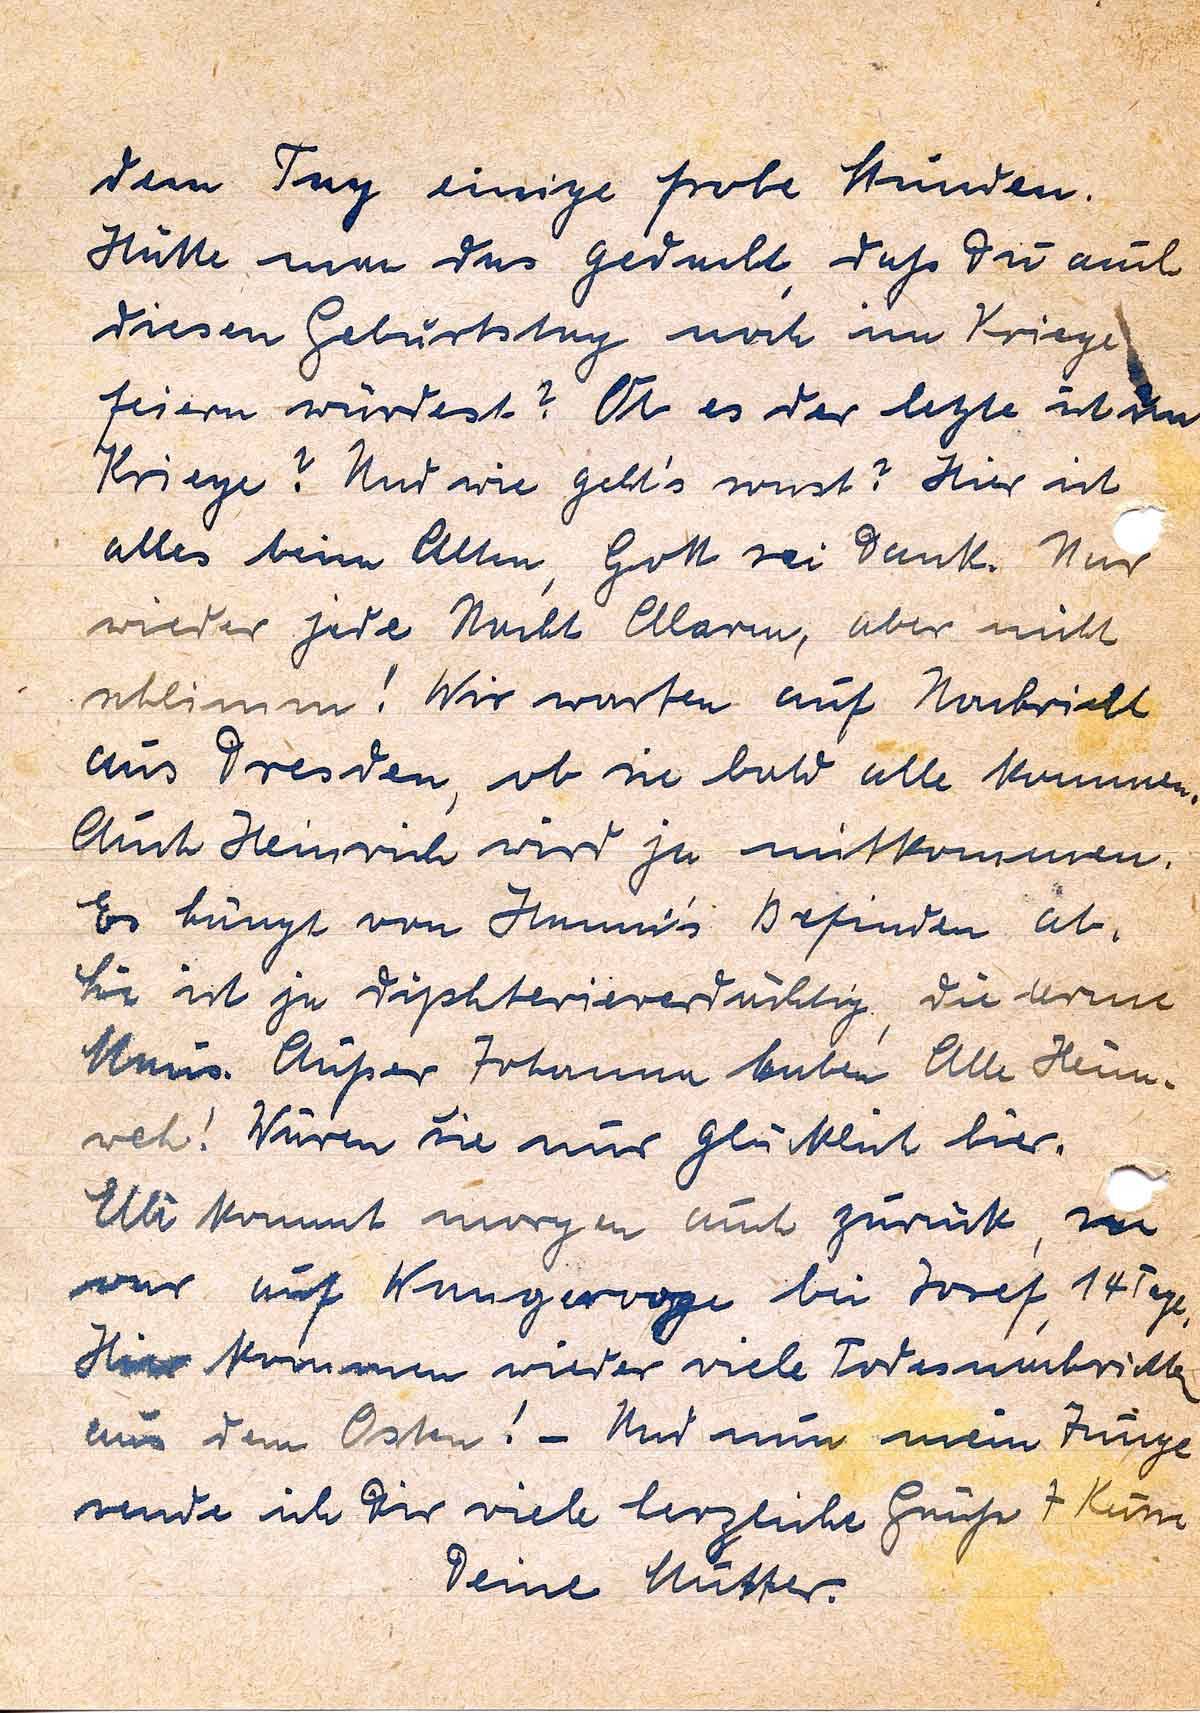 dem Tag einige frohe Stunden.
Hätte man das gedacht, daß Du auch
diesen Geburtstag noch im Kriege
feiern würdest? Ob es der letzte ist im
Kriege? Und wie geht's sonst? Hier ist
alles beim Alten, Gott sei Dank. Nur
wieder jede Nacht Alarm, aber nicht
schlimm! Wir warten auf Nachricht
aus Dresden, ob sie bald alle kommen.
Auch Heinrich wird ja mitkommen.
Es hängt von Hanni's Befinden ab.
Sie ist ja diphterieverdächtig, die arme
Maus. Außer Johanna haben Alle Heim-
weh! Wären sie nur glücklich hier.
Elli kommt morgen auch zurück, sie
war auf Wangerooge bei Josef, 14 Tage.
Hier kommen wieder viele Todesnachrichten
aus dem Osten! – Und nun mein Junge
sende ich Dir viele herzliche Grüße + Küsse
Deine Mutter.